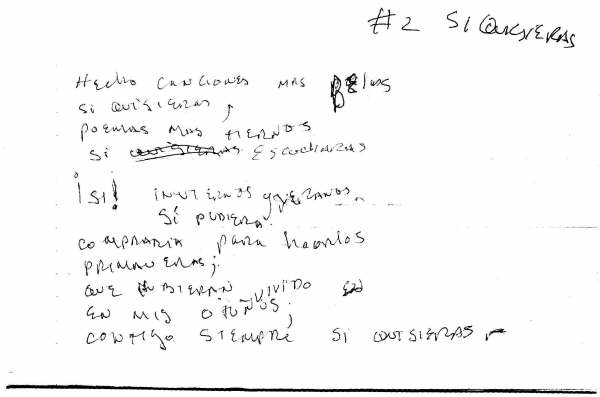 #2 SI QUISIERAS
HECHO CANCIONES MAS BELLAS
SI QUISIERAS,
POEMAS MAS TIERNOS
SI QUISIERAS ESCUCHARAS
¡SI! INVIERNOS y VERANOS
SI PUDIERA
COMPRARIA para hacerlos
PRIMAVERAS;
QUE HUBIERAN VIVIDO
EN MIS OTOÑOS;
CONTIGO SIEMPRE SI QUISIERAS